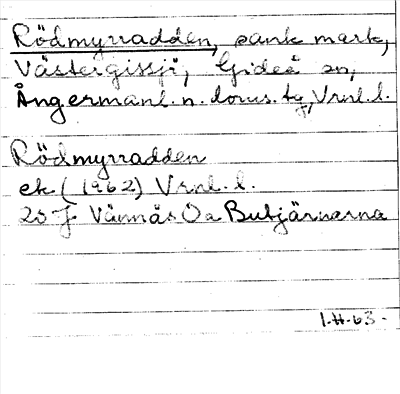 Rödmyrradden, sank mark,
Västergissjö, Gideå sn,
Ångermanl. n. doms. tg, Vrnl. l.
Rödmyrradden
ek (1962) Vrnl. l.
20 J Vännäs Öa Butjärnarna
1-II-63-